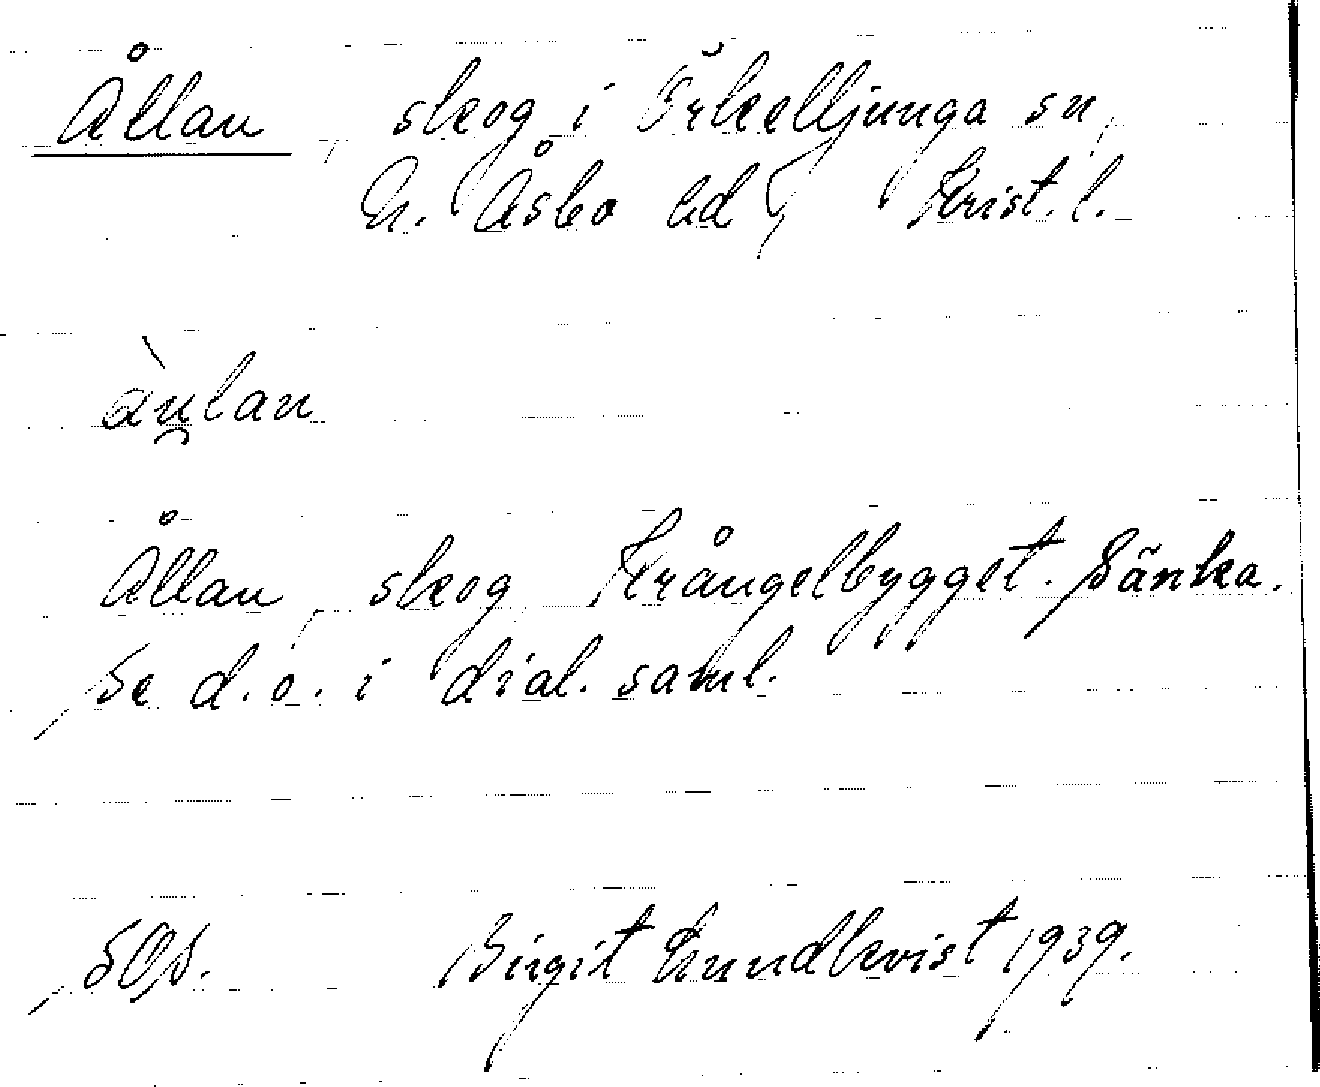 Ållan, skog i Örkelljunga sn,
N. Åsbo hd, Krist. l.
Ållan, skog Krångelbygget. Sänka.
Se d.o. i dial. saml.
SOS. Birgit Lundkvist 1939.